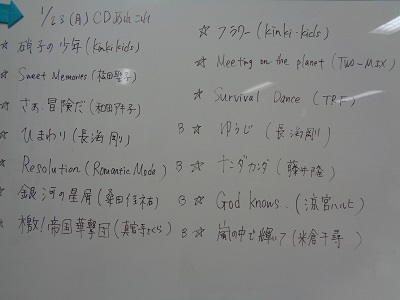 1/23(月) CD
☆ 硝子の少年 (kinki kids)
☆ Sweet Memories (松田聖子)
☆ さあ冒険だ (和田アキ子)
☆ ひまわり (長渕剛)
☆ Resolution (Romantic Mode)
☆ 銀河の星屑 (桑田佳祐)
☆ 檄!帝国華撃団 (真宮寺さくら)
☆ フラワー (kinki・kids)
☆ Meeting on the planet (TWO-MIX)
☆ Survival Dance (TRF)
B ☆ ゆうじ (長渕剛)
B ☆ ナンダカンダ (藤井隆)
B ☆ God knows.. (涼宮ハルヒ)
B ☆ 嵐の中で輝いて (米倉千尋)